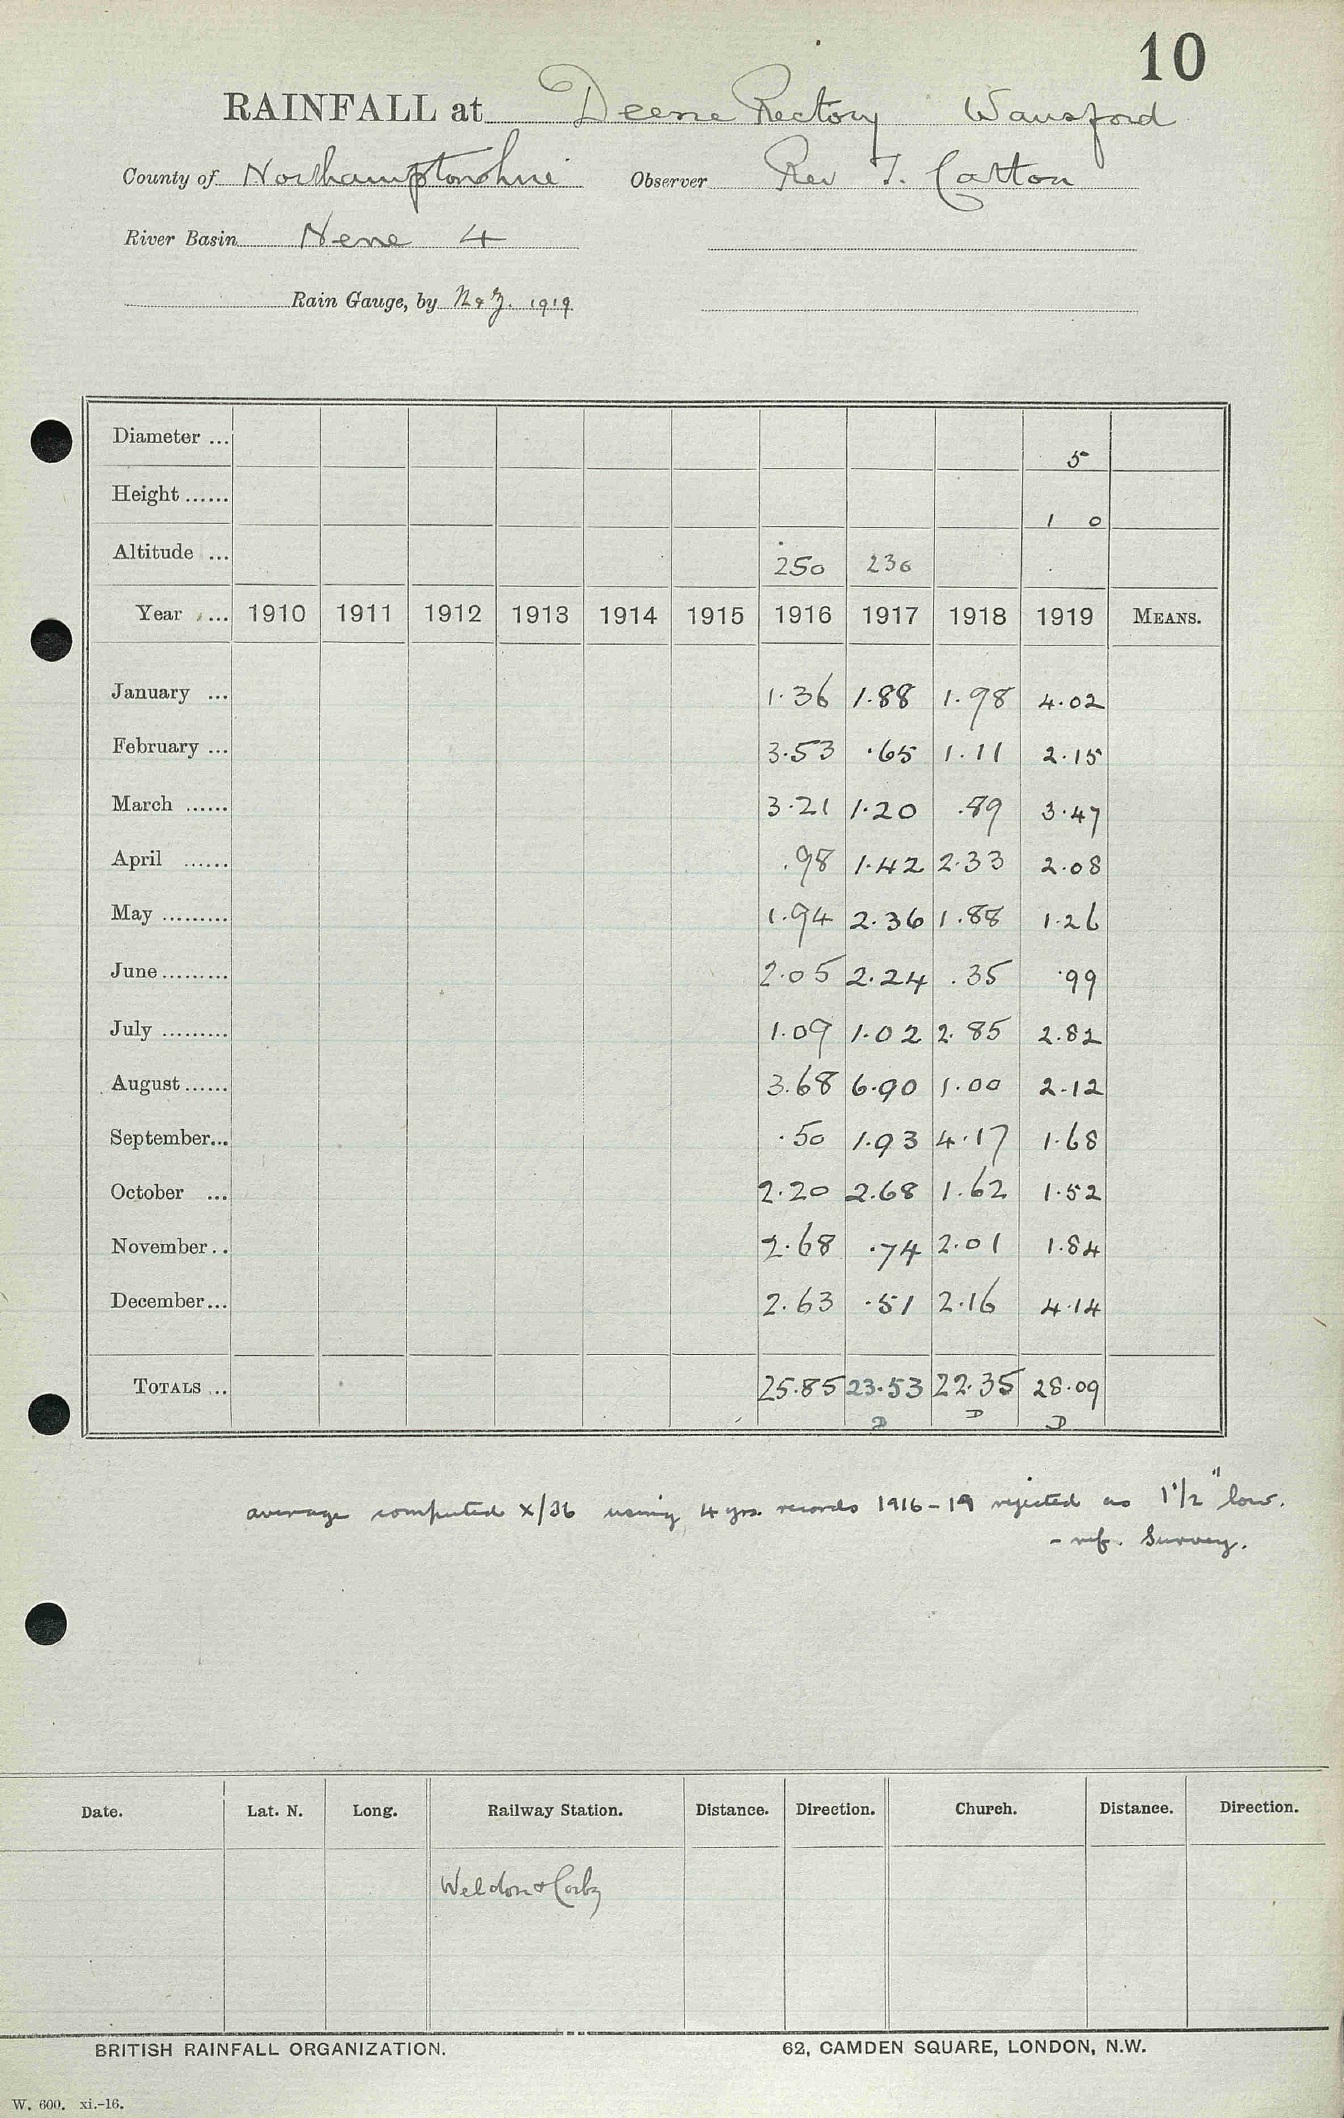 10
RAINFALL at Deene Rectory Wansford
County of Northamptonshire Observer Rev T. Catton
River Basin Nene 4
Rain Gauge, by N & Z. 1919
Diameter ... 5
Height ...... 1 0
Altitude ... 250 236
Year ... 1910 1911 1912 1913 1914 1915 1916 1917 1918 1919 MEANS.
January ... 1.36 1.88 1.98 4.02
February ... 3.53 .65 1.11 2.15
March ...... 3.21 1.20 .89 3.47
April ...... .98 1.42 2.33 2.08
May ......... 1.94 2.36 1.88 1.26
June ......... 2.05 2.24 .35 .99
July ......... 1.09 1.02 2.85 2.82
August ...... 3.68 6.90 1.00 2.12
September... .50 1.93 4.17 1.68
October ... 2.20 2.68 1.62 1.52
November .. 2.68 .74 2.01 1.84
December... 2.63 .51 2.16 4.14
TOTALS ... 25.85 23.53 22.35 28.09
D D D
average computed x/36 using 4 yrs. records 1916-19 rejected as 1 1/2" low.
- ref. Survey.
Date. Lat. N. Long. Railway Station. Distance. Direction. Church. Distance. Direction.
Weldon & Corby
BRITISH RAINFALL ORGANIZATION. 62, CAMDEN SQUARE, LONDON, N.W.
W. 600. xi.-16.